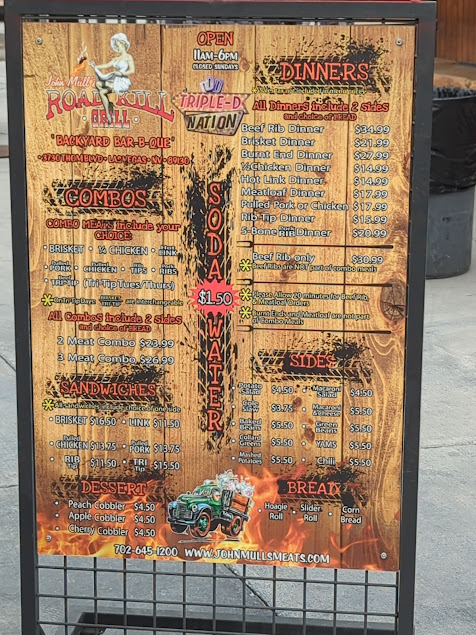 OPEN
11AM-6PM
CLOSED SUNDAYS
John Mull's
ROAD KILL
GRILL
TRIPLE-D
NATION
"BACKYARD BAR-B-QUE"
3730 THOM BLVD • LAS VEGAS • NV • 89130
DINNERS
All Dinners include 2 sides
and choice of BREAD
Beef Rib Dinner $34.99
Brisket Dinner $21.99
Burnt End Dinner $27.99
¼Chicken Dinner $14.99
Hot Link Dinner $14.99
Meatloaf Dinner $17.99
Pulled Pork or Chicken $17.99
Rib Tip Dinner $15.99
5-Bone Pork RIB Dinner $20.99
Beef Rib only $30.99
Beef Ribs are NOT part of combo meals
Please Allow 20 minutes for Beef Rib
& Meatloaf Orders
Burnt Ends and Meatloaf are not part
of Combo Meals
COMBOS
COMBO MEATS include your
CHOICE:
• BRISKET • ¼ CHICKEN • LINK
• Pulled PORK • Pulled CHICKEN • TIPS • RIBS
• TRI-TIP (Tri Tip Tues/Thurs)
On Tri Tip Days BRISKET TRI TIP are interchangeable
All Combos include 2 sides
and choice of BREAD
2 Meat Combo $23.99
3 Meat Combo $26.99
SODA
$1.50
WATER
SANDWICHES
All sandwiches include choice of one side
• BRISKET $16.50 • LINK $11.50
• Pulled CHICKEN $13.75 • Pulled PORK $13.75
• RIB Tip $11.50 • TRI Tip $15.50
SIDES
• Potato Salad $4.50 • Macaroni Salad $4.50
• Cole Slaw $3.75 • Macaroni & Cheese $5.50
• Baked Beans $5.50 • Green Beans $5.50
• Collard Greens $5.50 • YAMS $5.50
• Mashed Potatoes $5.50 • Chili $5.50
DESSERT
• Peach Cobbler $4.50
• Apple Cobbler $4.50
• Cherry Cobbler $4.50
BREAD
• Hoagie Roll • Slider Roll • Corn Bread
702-645-1200 WWW.JOHNMULLSMEATS.COM